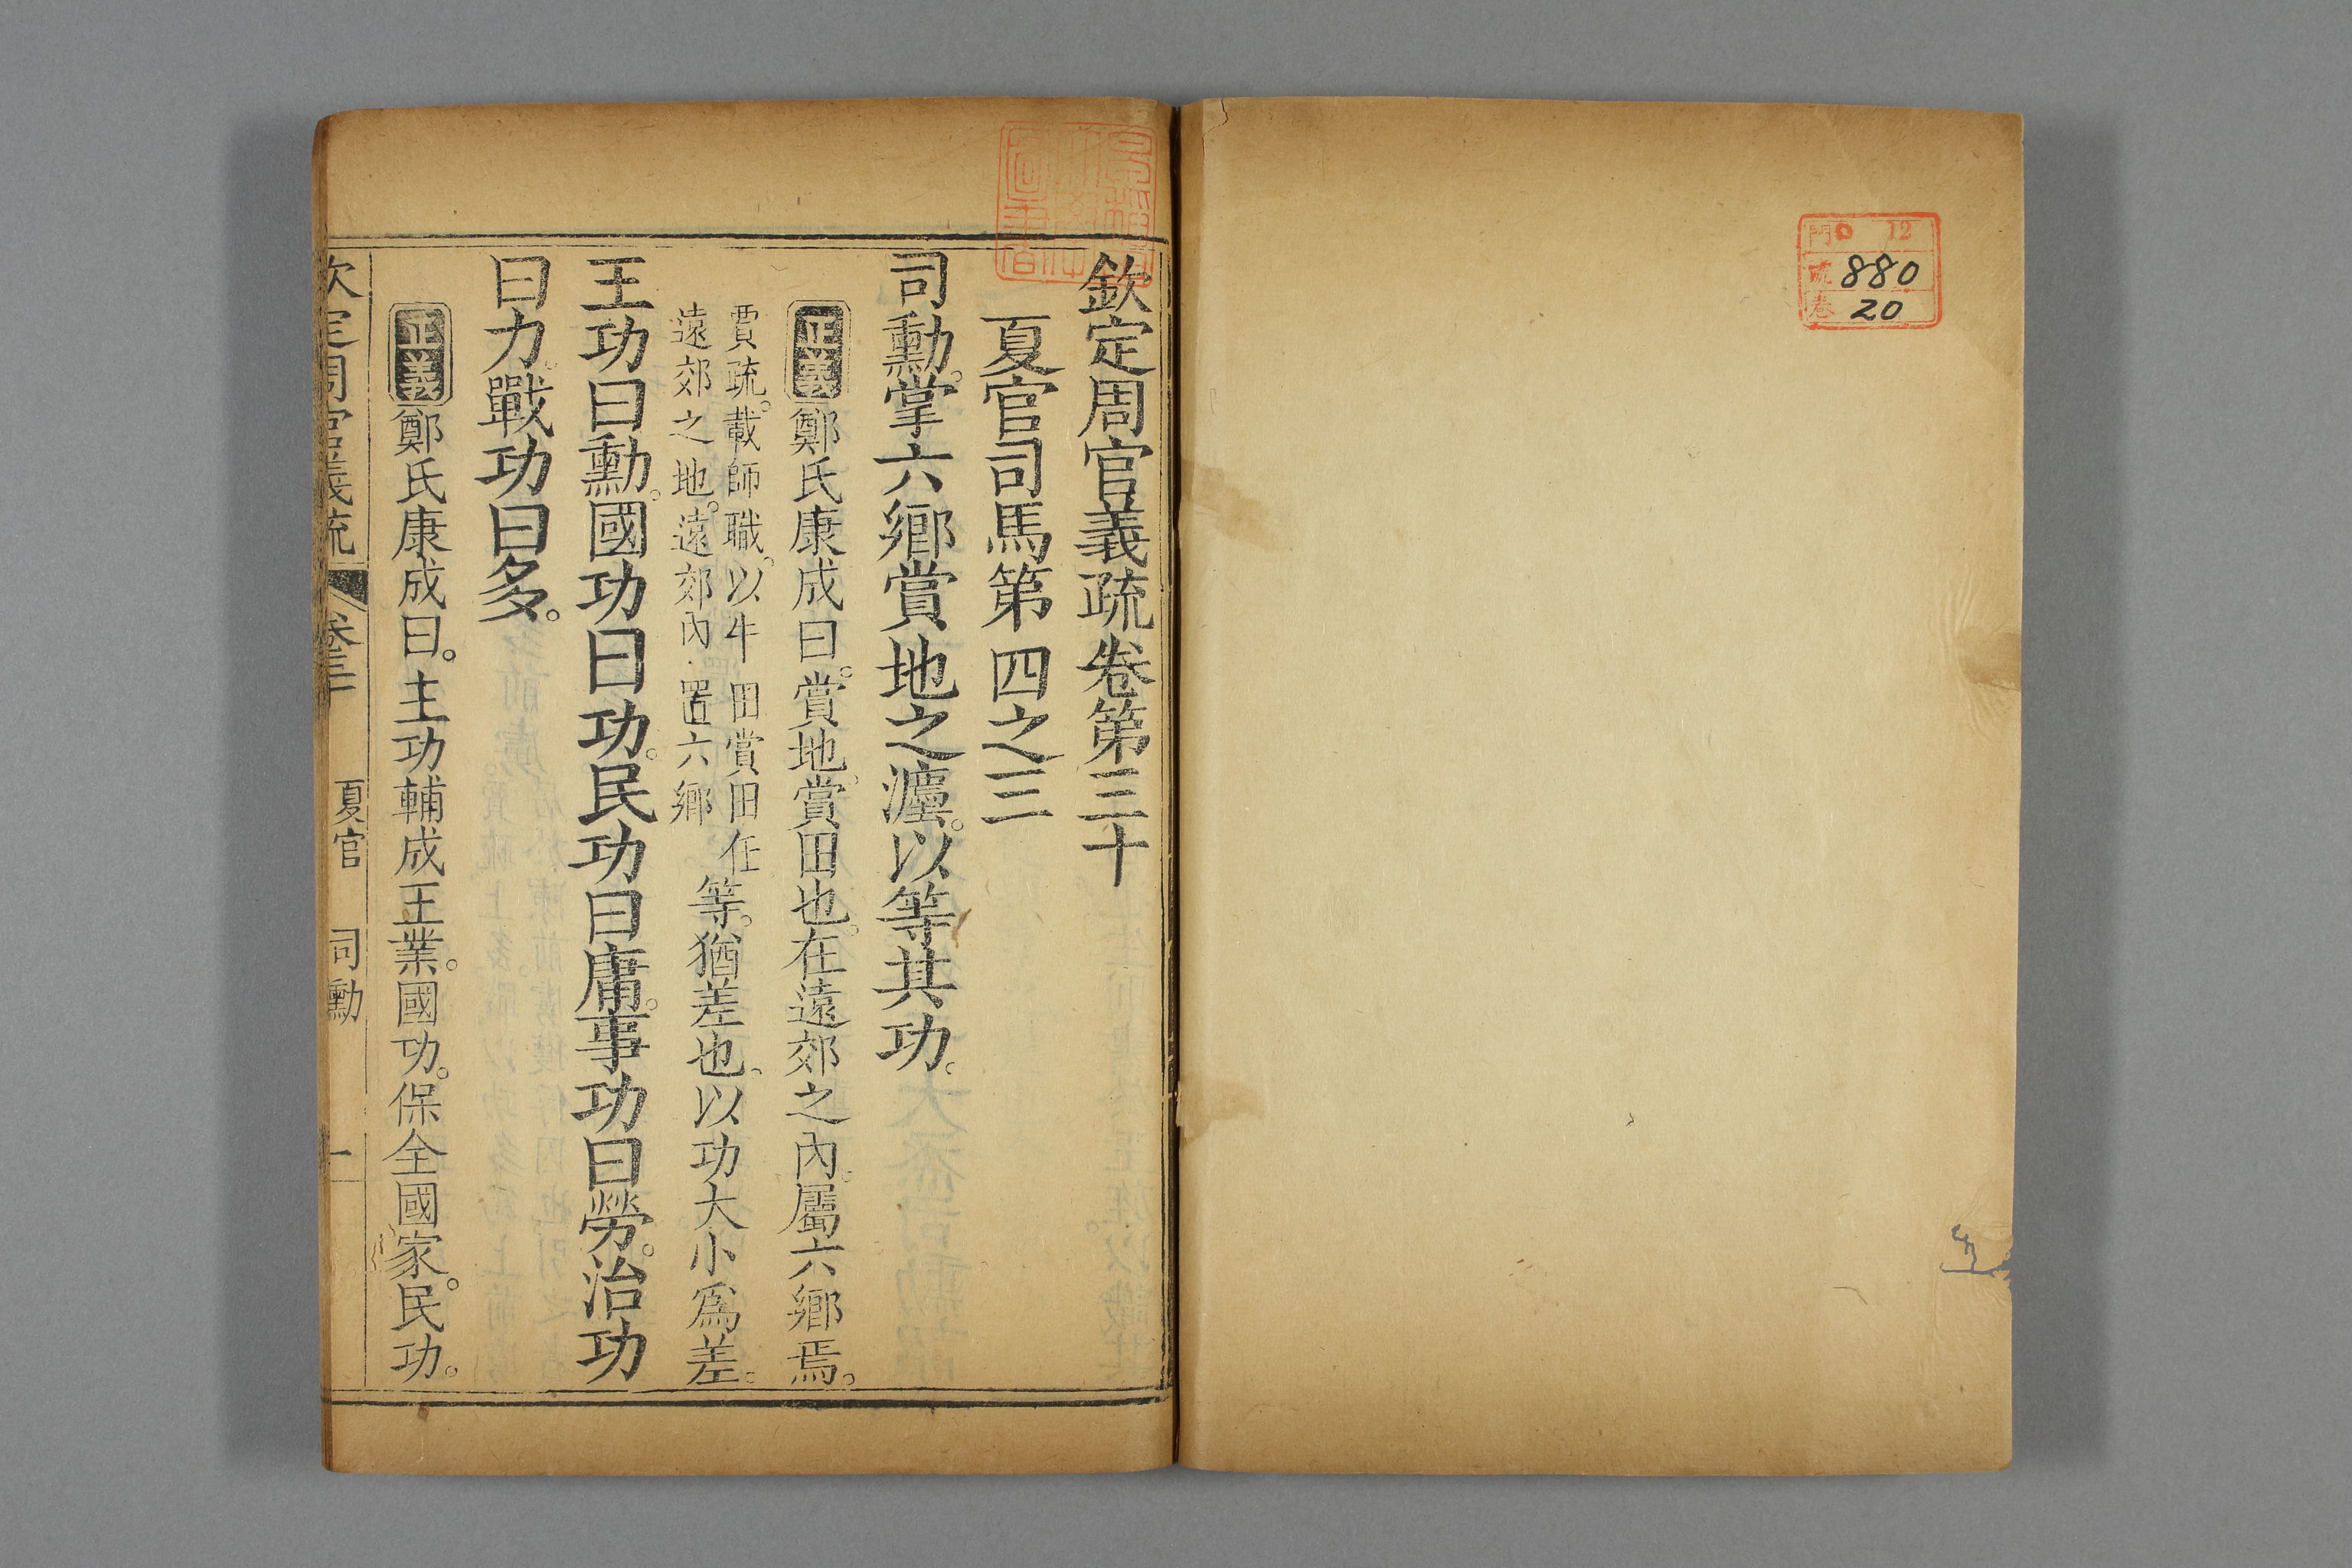 門 12
號 880
卷 20
欽定周官義疏卷第三十
夏官司馬第四之三
司勳。掌六鄉賞地之灋。以等其功。
正義鄭氏康成曰。賞地。賞田也。在遠郊之內。屬六鄉焉。
賈疏。載師職。以牛田賞田任
遠郊之地。遠郊內置六鄉
等。猶差也。以功大小爲差。
王功曰勳。國功曰功。民功曰庸。事功曰勞。治功
曰力。戰功曰多。
正義鄭氏康成曰。主功輔成王業。國功。保全國家。民功。
欽定周官義疏 卷三十 夏官 司勳 一